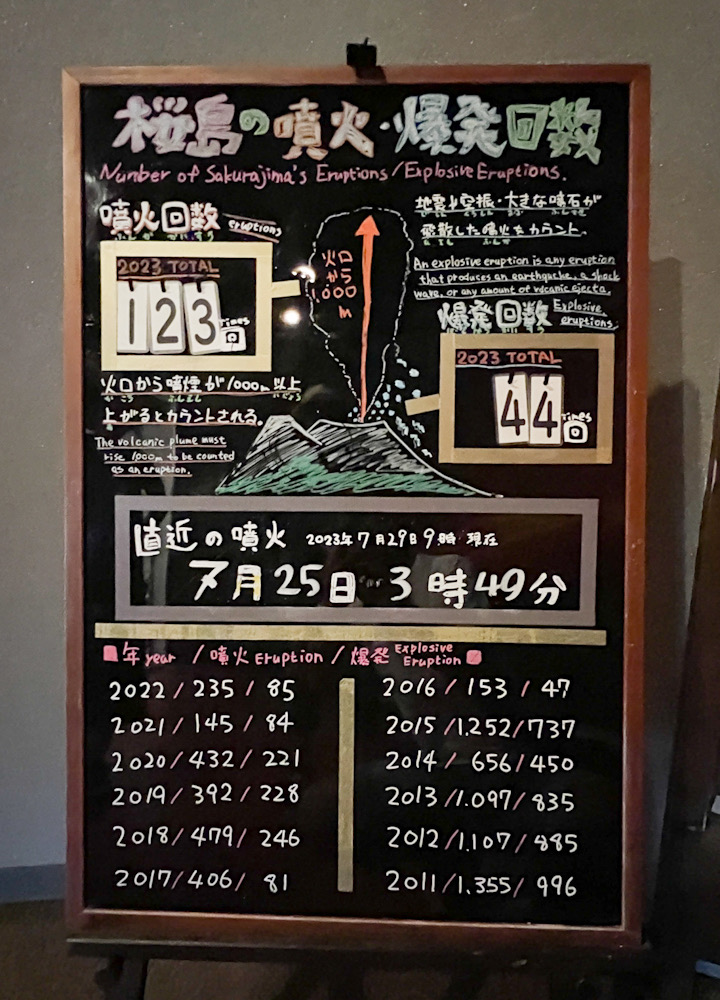 桜島の噴火・爆発回数
Number of Sakurajima's Eruptions/Explosive Eruptions.
噴火回数 eruptions
ふんか かいすう
2023 TOTAL
123 Times 回
火口から噴煙が1000m以上
かこう ふんえん いじょう
上がるとカウントされる。
The volcanic plume must
rise 1000m to be counted
as an eruption.
火口
から
1,000
m
地震や空振・大きな噴石が
飛散した噴火をカウント。
An explosive eruption is any eruption
that produces an earthquake, a shock
wave, or any amount of volcanic ejecta.
爆発回数 Explosive
eruptions
2023 TOTAL
44 Times 回
直近の噴火 2023年7月29日9時 現在
7月25日 3時49分
年 year / 噴火 Eruption / 爆発 Explosive Eruption
2022 / 235 / 85
2021 / 145 / 84
2020 / 432 / 221
2019 / 392 / 228
2018 / 479 / 246
2017 / 406 / 81
2016 / 153 / 47
2015 / 1.252 / 737
2014 / 656 / 450
2013 / 1.097 / 835
2012 / 1.107 / 885
2011 / 1.355 / 996